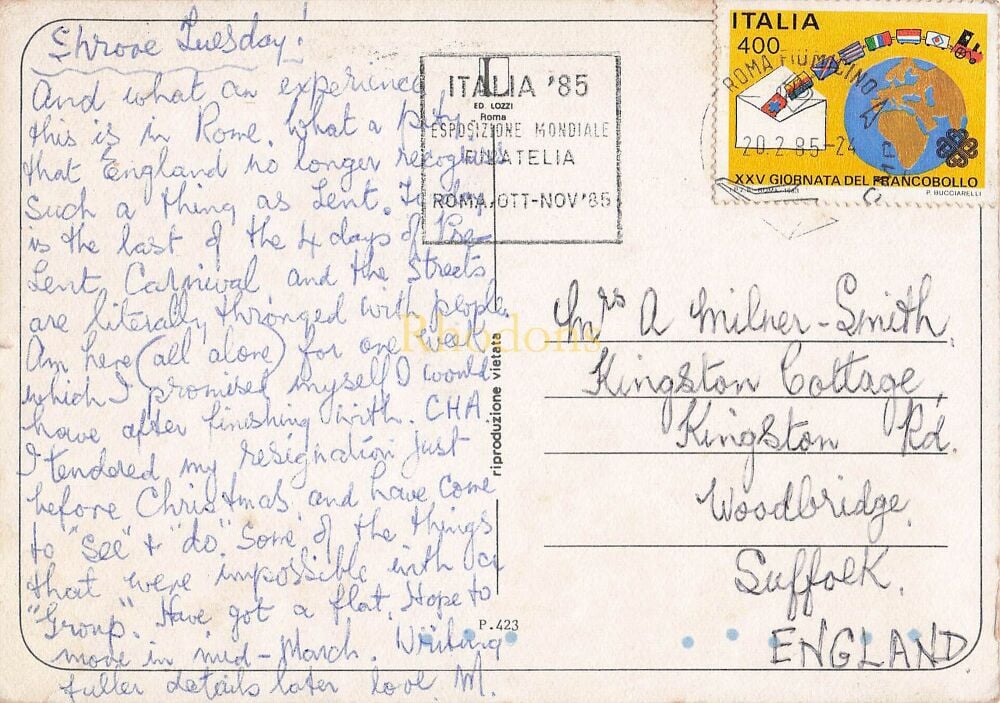 Shrove Tuesday!
And what an experience
this is in Rome. What a pity
that England no longer recognises
such a thing as Lent. To-day
is the last of the 4 days of Pre-
Lent Carnival and the streets
are literally thronged with people.
Am here (all alone) for one week
which I promised myself I would
have after finishing with CHA.
I tendered my resignation just
before Christmas and have come
to "see" & "do" some of the things
that were impossible with a
"Group". Have got a flat. Hope to
move in mid-March. Writing
fuller details later love M.
ITALIA '85
ED. LOZZI
Roma
ESPOSIZIONE MONDIALE
FILATELIA
ROMA, OTT-NOV '85
riproduzione vietata
P.423
Rhodons
ITALIA
400
ROMA FIUMICINO
20.2.85-24
XXV GIORNATA DEL FRANCOBOLLO
P. BUCCIARELLI
Mrs A Milner-Smith,
Kingston Cottage,
Kingston Rd.
Woodbridge,
Suffolk.
ENGLAND.